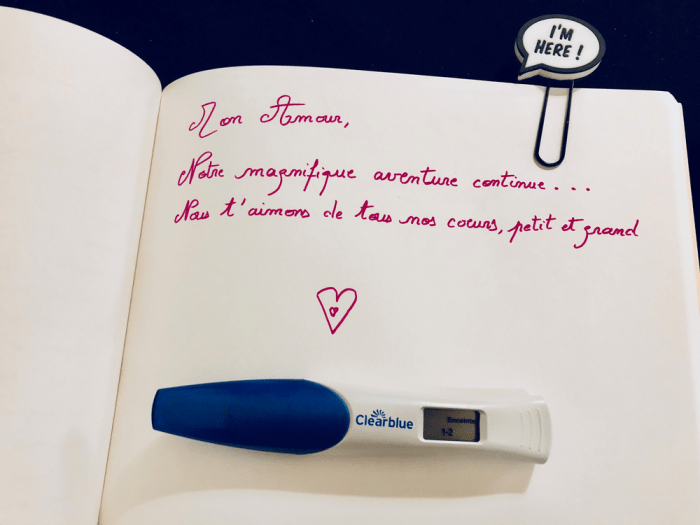 I'M
HERE !
Mon Amour,
Notre magnifique aventure continue...
Nous t'aimons de tous nos coeurs, petit et grand
Clearblue
Enceinte
1-2